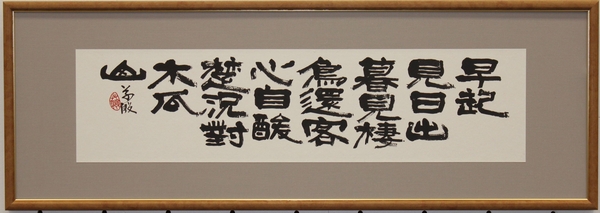 早起
見日出
暮見棲
鳥還客
心自酸
楚況對
木瓜
山